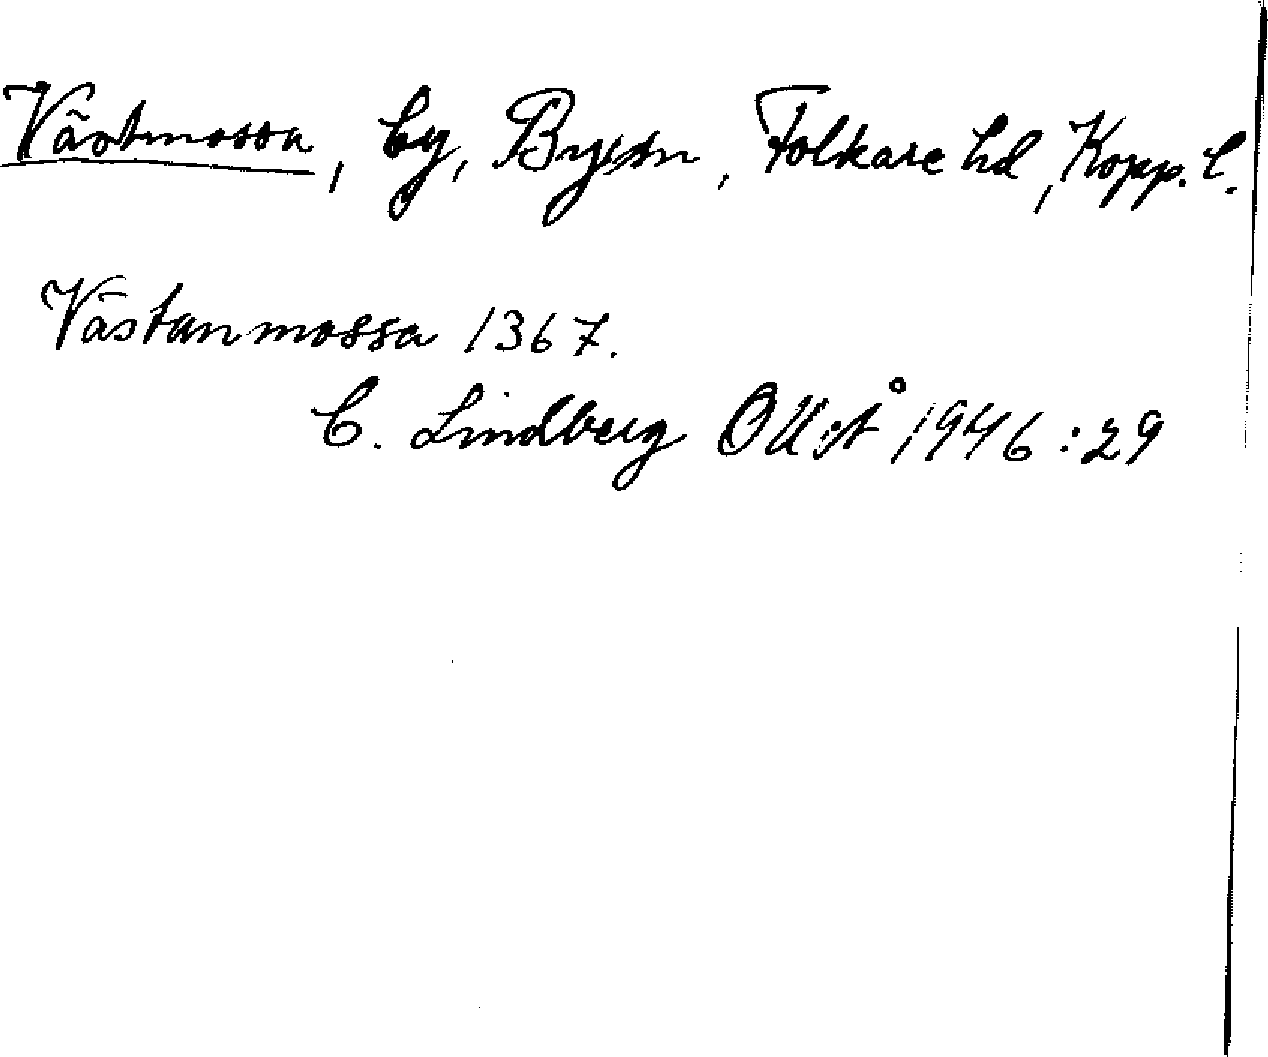 Västmossa, by, By sn, Folkare hd, Kopp. l.
Västanmossa 1367.
C. Lindberg OUÅ 1946:29